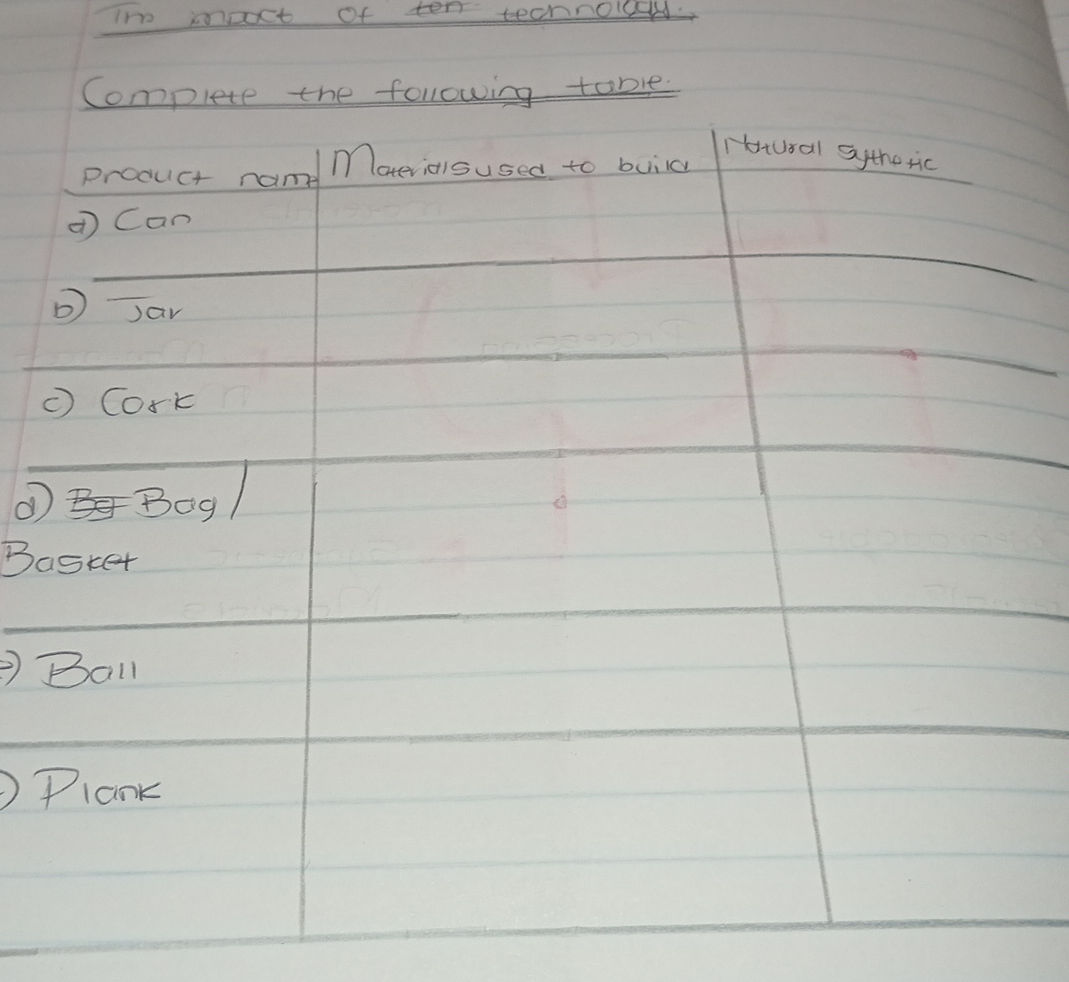 Im impact of ten technology.
Complete the following table.
Product name Materials used to build Natural sythetic
a) Can
b) Jar
c) Cork
d) Bag/
Basket
e) Ball
Plank